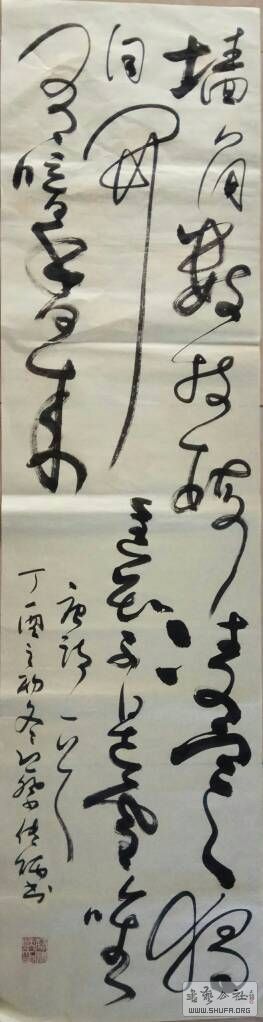 墙角数枝梅凌寒独
自開遥知不是雪唯
有暗香来
唐詩一首
丁酉之初冬书
書藝公社
WWW.SHUFA.ORG